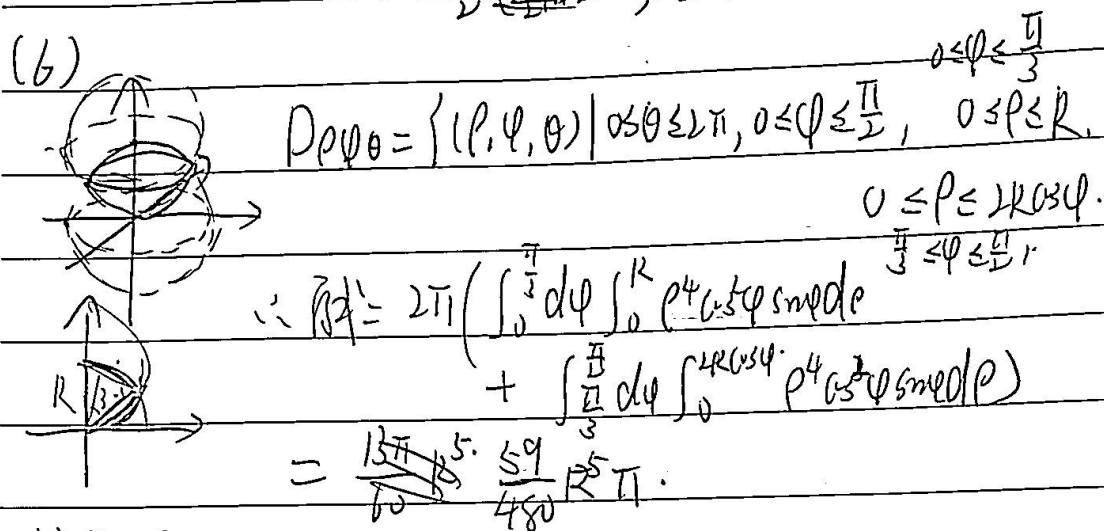 (6)
0≤φ≤π/3
Dρφθ = {(ρ,φ,θ)|0≤θ≤2π, 0≤φ≤π/2, 0≤ρ≤R,
0≤ρ≤2Rcosφ.
π/3≤φ≤π/2}
∴ 原式= 2π(∫_0^{π/3} dφ ∫_0^R ρ⁴cos²φ sinφ dρ
+ ∫_{π/3}^{π/2} dφ ∫_0^{2Rcosφ} ρ⁴cos²φ sinφ dρ)
R π/3
= 59/480 R⁵π.